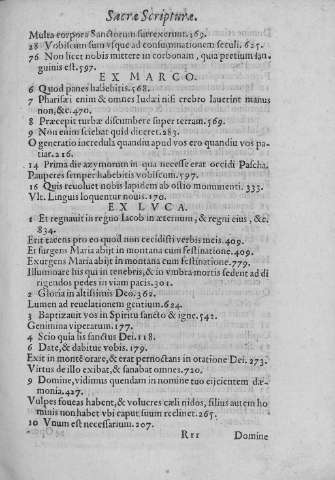 Sacræ Scripturæ.
Multa corpora Sanctorum surrexerunt. 369.
28 Vobiscum sum vsque ad consumationem seculi. 625.
76 Non licet nobis mittere in corbonam, quia pretium san-
guinis est. 597.
EX MARCO.
6 Quod panes habebitis. 568.
7 Pharisæi enim & omnes Iudæi nisi crebro lauerint manus
non, &c. 470.
8 Præcepit turbæ discumbere super terram. 569.
9 Non enim sciebat quid diceret. 283.
O generatio incredula quandiu apud vos ero quandiu vos pa-
tiar. 216.
14 Prima die azymorum in qua necesse erat occidi Pascha.
Pauperes semper habebitis vobiscum. 597.
16 Quis reuoluet nobis lapidem ab ostio monumenti. 333.
Vlt. Linguis loquentur nouis. 170.
EX LVCA.
1 Et regnauit in regno Iacob in æternum, & regni eius, &c.
834.
Erit tacens pro eo quod non credidisti verbis meis. 409.
Et surgens Maria abijt in montana cum festinatione. 409.
Exurgens Maria abijt in montana cum festinatione. 779.
Illuminare his qui in tenebris, & in vmbra mortis sedent ad di
rigendos pedes in viam pacis. 301.
2 Gloria in altissimis Deo. 362.
Lumen ad reuelationem gentium. 624.
3 Baptizauit vos in Spiritu sancto & igne. 542.
Genimina viperarum. 177.
4 Scio quia sis sanctus Dei. 118.
6 Date, & dabitur vobis. 179.
Exit in montē orare, & erat pernoctans in oratione Dei. 273.
Virtus de illo exibat, & sanabat omnes. 720.
9 Domine, vidimus quendam in nomine tuo eijcientem dæ-
monia. 427.
Vulpes foueas habent, & volucres cæli nidos, filius autem ho
minis non habet vbi caput suum reclinet. 265.
10 Vnum est necessarium. 207.
Rrr Domine